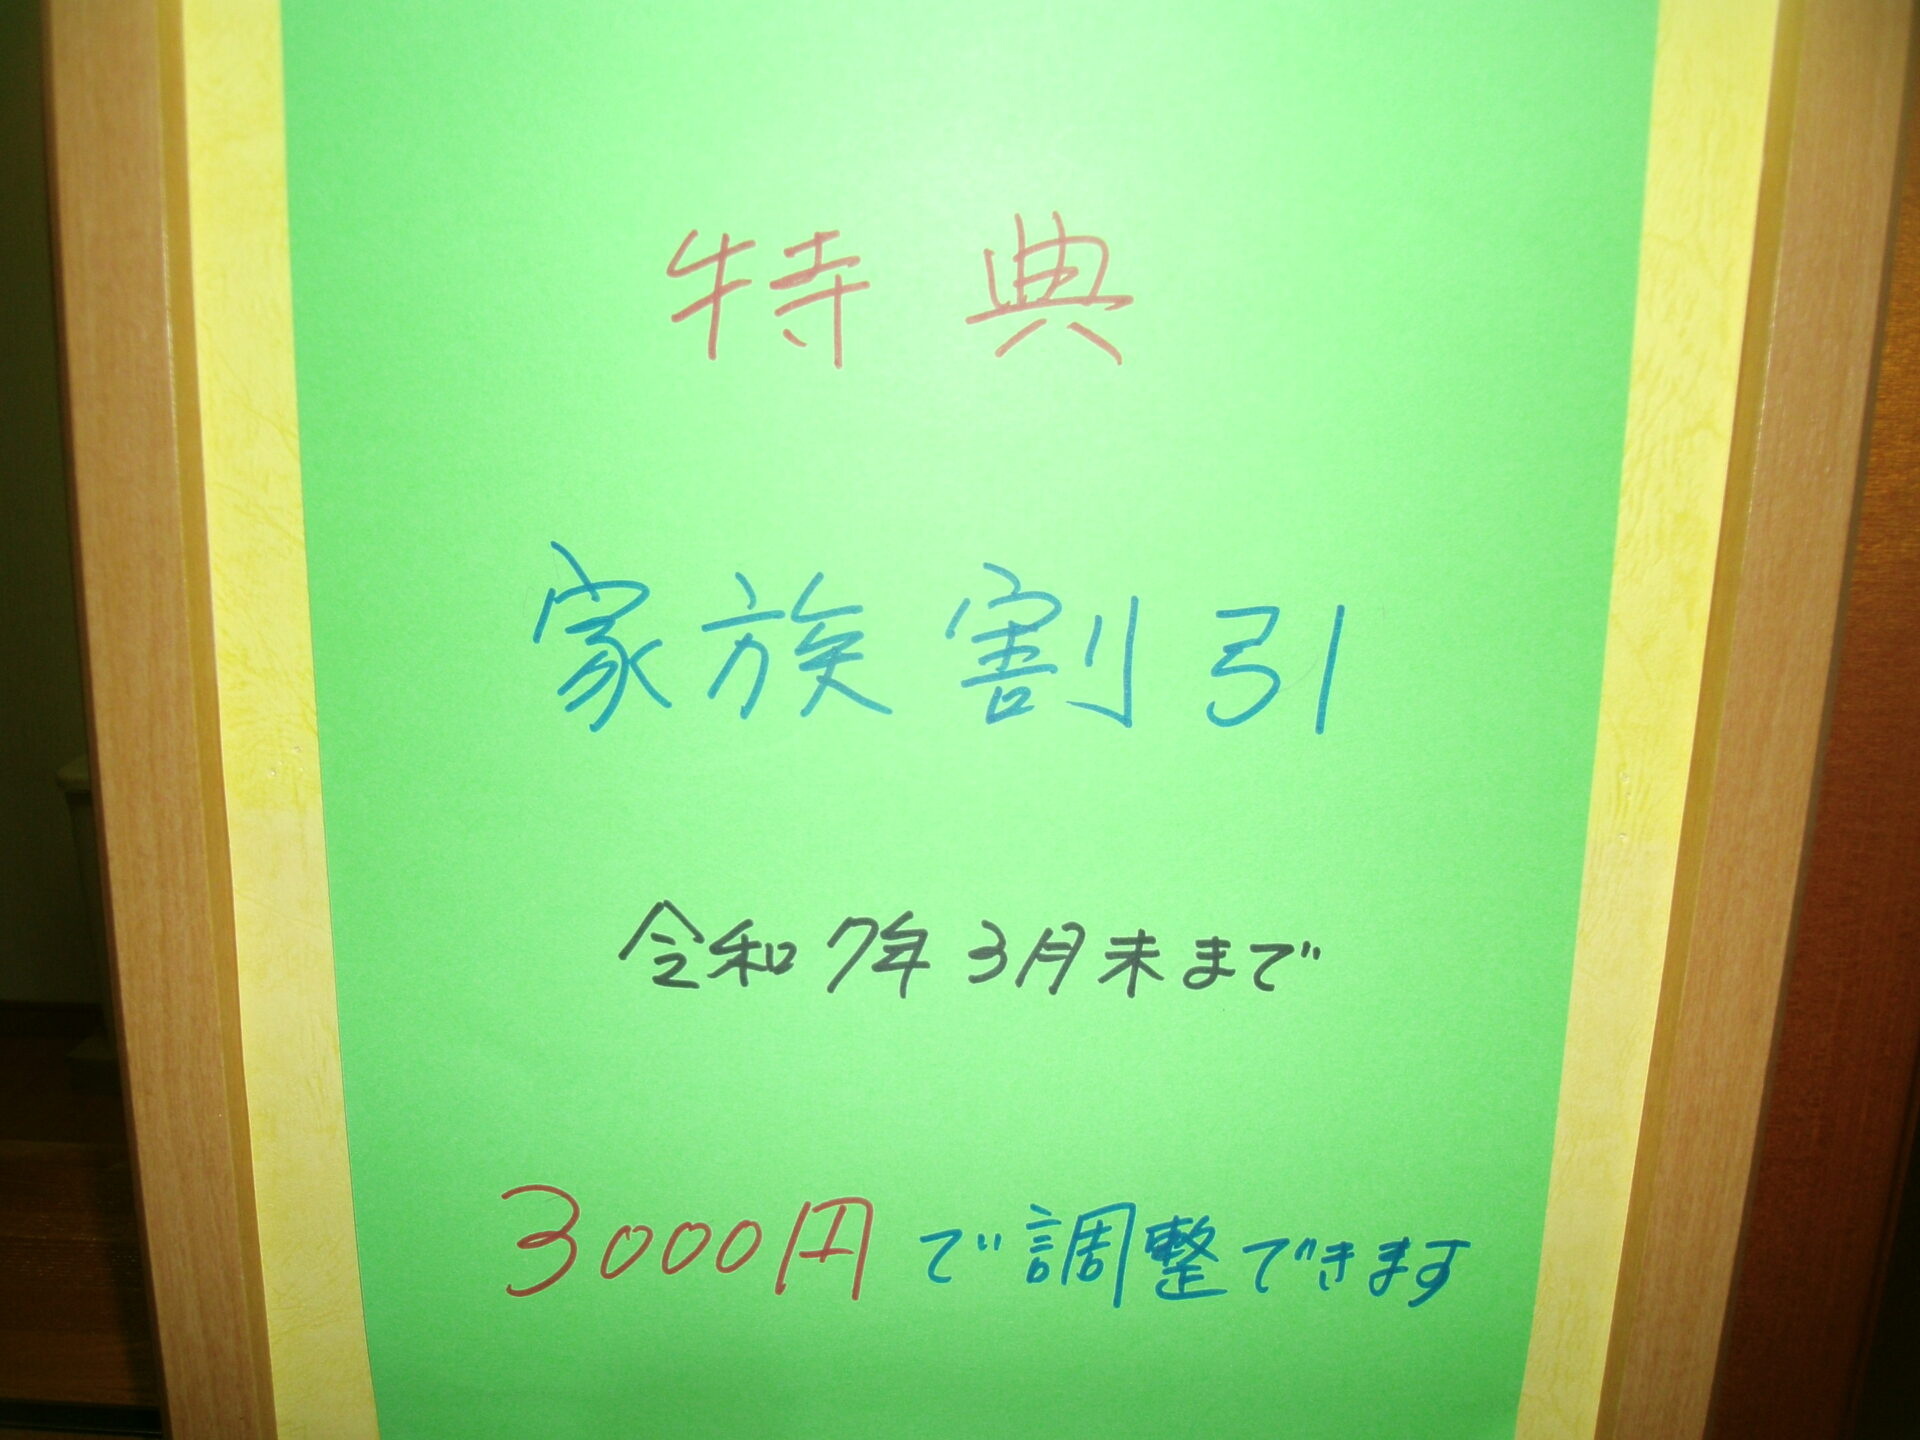 特典
家族割引
令和7年3月末まで
3000円で調整できます